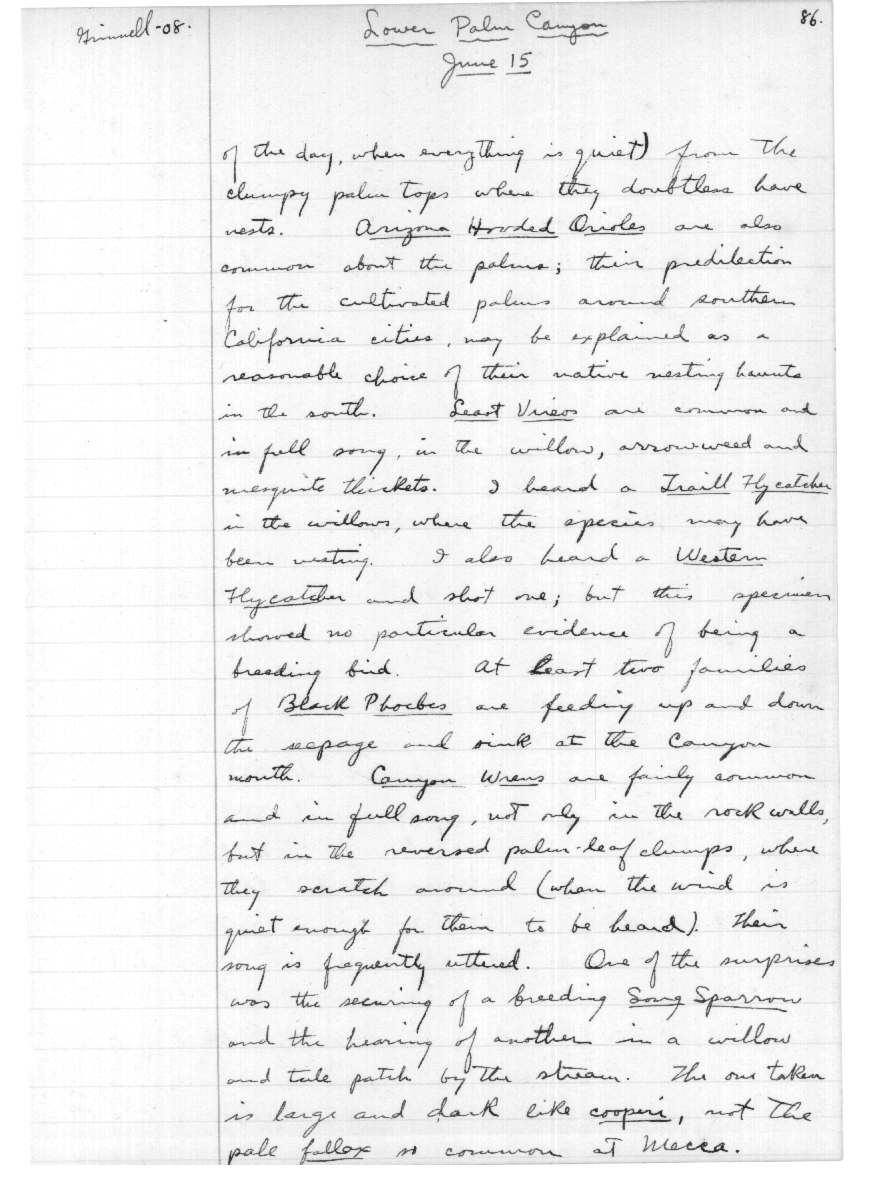 Grinnell-08.
Lower Palm Canyon
86.
June 15
of the day, when everything is quiet) from the
clumpy palm tops where they doubtless have
nests. Arizona Hooded Orioles are also
common about the palms; their predilection
for the cultivated palms around southern
California cities, may be explained as a
reasonable choice of their native nesting haunts
in the south. Least Vireos are common and
in full song, in the willow, arrowweed and
mesquite thickets. I heard a Traill Flycatcher
in the willows, where the species may have
been nesting. I also heard a Western
Flycatcher and shot one; but this specimen
showed no particular evidence of being a
breeding bird. At least two families
of Black Phoebes are feeding up and down
the seepage and sink at the Canyon
mouth. Canyon Wrens are fairly common
and in full song, not only in the rock walls,
but in the reversed palm-leaf clumps, where
they scratch around (when the wind is
quiet enough for them to be heard). Their
song is frequently uttered. One of the surprises
was the securing of a breeding Song Sparrow
and the hearing of another in a willow
and tule patch by the stream. The one taken
is large and dark like cooperi, not the
pale fallax so common at Mecca.